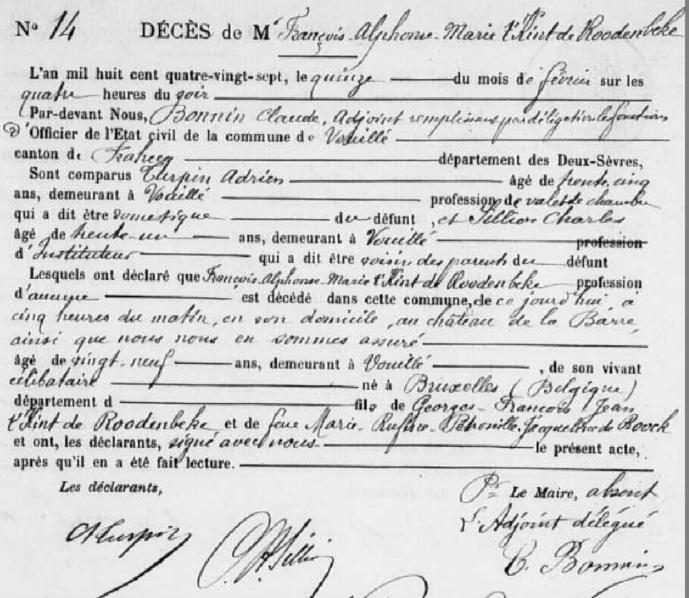 N° 14 DÉCÈS de Mr François-Alphonse-Marie t'Kint de Roodenbeke
L'an mil huit cent quatre-vingt-sept, le quinze du mois de février sur les
quatre heures du soir
Par-devant Nous, Bonnin Claude, Adjoint remplissant par délégation les fonctions
d'Officier de l'Etat civil de la commune de Vouillé
canton de Prahecq département des Deux-Sèvres,
Sont comparus Turpin Adrien âgé de trente cinq
ans, demeurant à Vouillé profession de valet de chambre
qui a dit être domestique du défunt, et Charles
âgé de trente-un ans, demeurant à Vouillé profession
d'Instituteur qui a dit être voisin des parents du défunt
Lesquels ont déclaré que François-Alphonse-Marie t'Kint de Roodenbeke profession
d'aucune est décédé dans cette commune, de ce jourd'hui, à
cinq heures du matin, en son domicile, au château de la Barre,
ainsi que nous nous en sommes assuré
âgé de vingt-neuf ans, demeurant à Vouillé, de son vivant
célibataire né à Bruxelles (Belgique)
département d fils de Georges-François Jean
t'Kint de Roodenbeke et de feue Marie-Rufine-Pétronille Jacqueline de Roock
et ont, les déclarants, signé avec nous le présent acte,
après qu'il en a été fait lecture.
Les déclarants, Pr Le Maire, absent
L'Adjoint délégué
ATurpin C. Bonnin